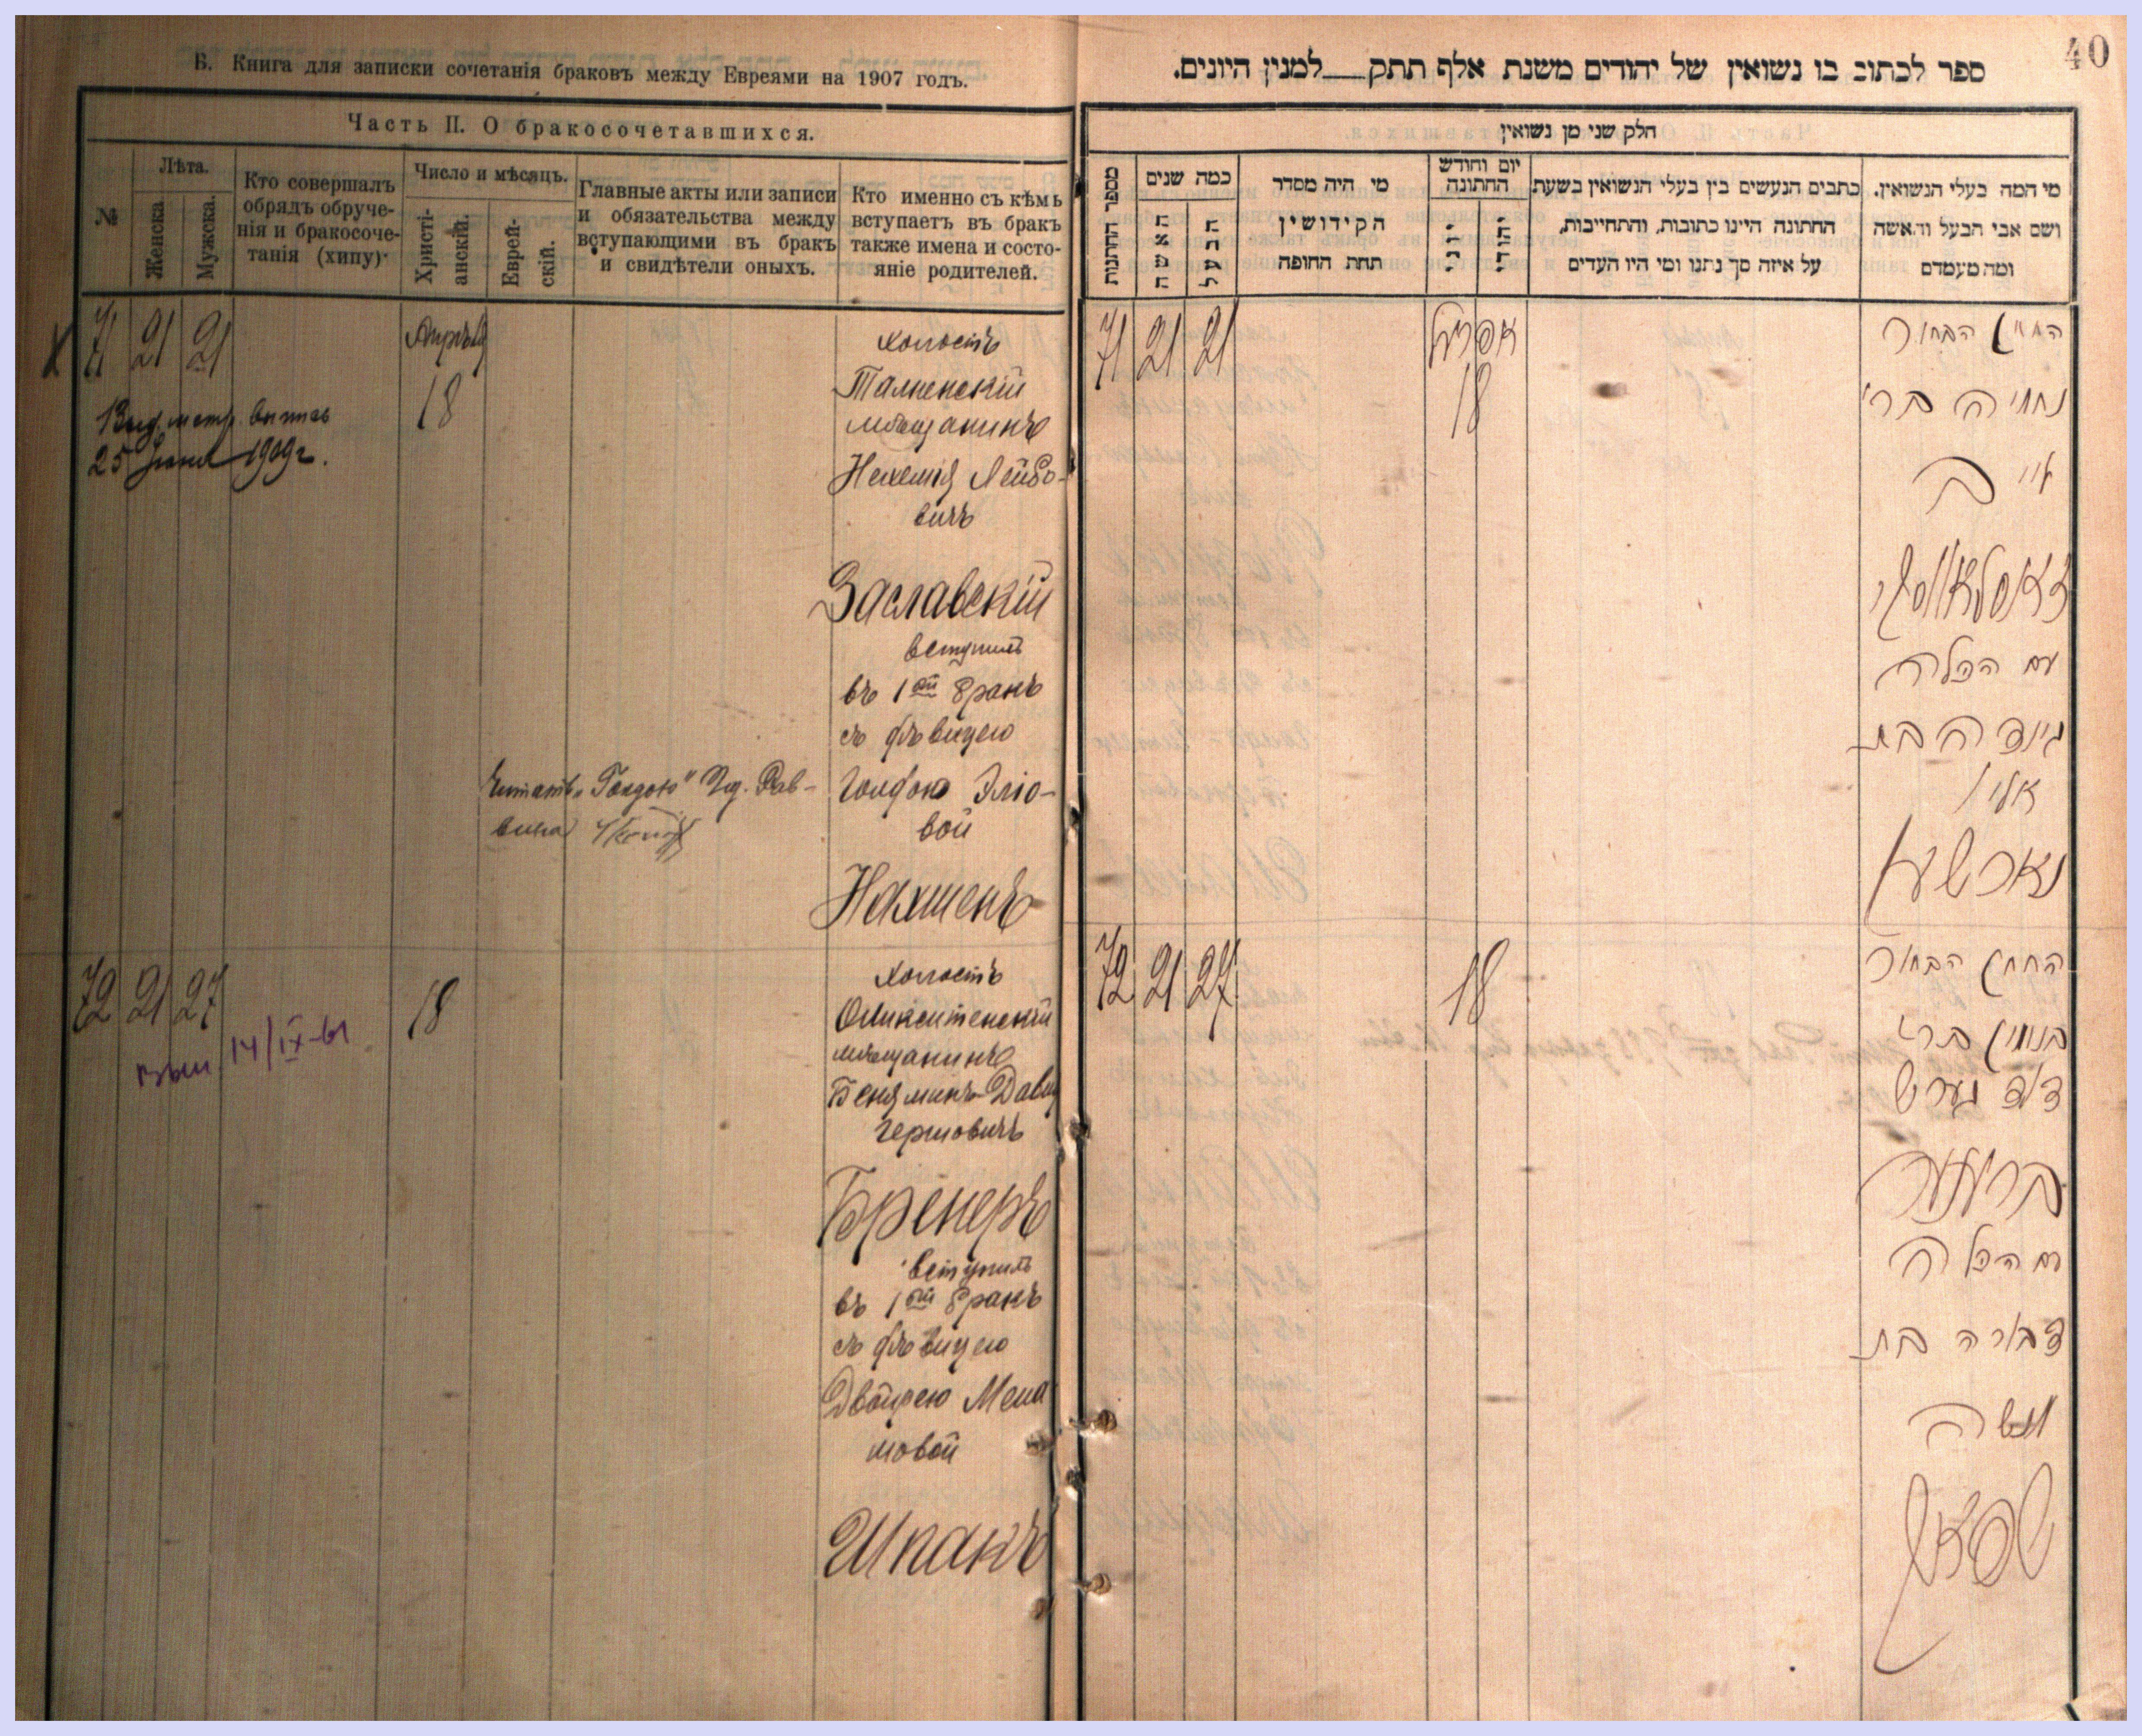 Б. Книга для записки сочетанія браковъ между Евреями на 1907 годъ.
Часть II. О бракосочетавшихся.
№
Лѣта.
Женска
Мужска.
Кто совершалъ
обрядъ обруче-
нія и бракосоче-
танія (хипу)
Число и мѣсяцъ.
Христі-
анскій.
Еврей-
скій.
Главные акты или записи
и обязательства между
вступающими въ бракъ
и свидѣтели оныхъ.
Кто именно съ кѣмъ
вступаетъ въ бракъ
также имена и состо-
яніе родителей.
71 21 21
Апрѣль
18
25 1909 г.
холостъ
Тальненскій
мѣщанинъ
Нехемія Лейбо-
вичъ
Заславскій
вступилъ
въ 1ый бракъ
съ дѣвицею
Голдою Эліо-
вой
Нахшенъ
Читать „Голдою"
72 21 27
18
14/IX-61
холостъ
мѣщанинъ
Беняминъ Давид
Гершовичъ
Бренеръ
вступилъ
въ 1ый бракъ
съ дѣвицею
Двойрею Мена
шовой
Шпакъ
40
ספר לכתוב בו נשואין של יהודים משנת אלף תתק למנין היונים.
חלק שני מן נשואין
מספר החתונות
כמה שנים
האשה
הבעל
מי היה מסדר
הקידושין
תחת החופה
יום וחודש
החתונה
יוני
יהודי
כתבים הנעשים בין בעלי הנשואין בשעת
החתונה היינו כתובות, והתחייבות,
על איזה סך נתנו ומי היו העדים
מי המה בעלי הנשואין.
ושם אבי הבעל והאשה
ומה מעמדם
71 21 21
אפריל
18
החתן הבחור
נחמיה בר׳
לייב
זאסלאווסקי
עם הכלה
גולדה בת
אליו
72 21 27
18
החתן הבחור
בנימין בר׳
דוד הערש
ברענער
עם הכלה
דבורה בת
מנשה
שפאק